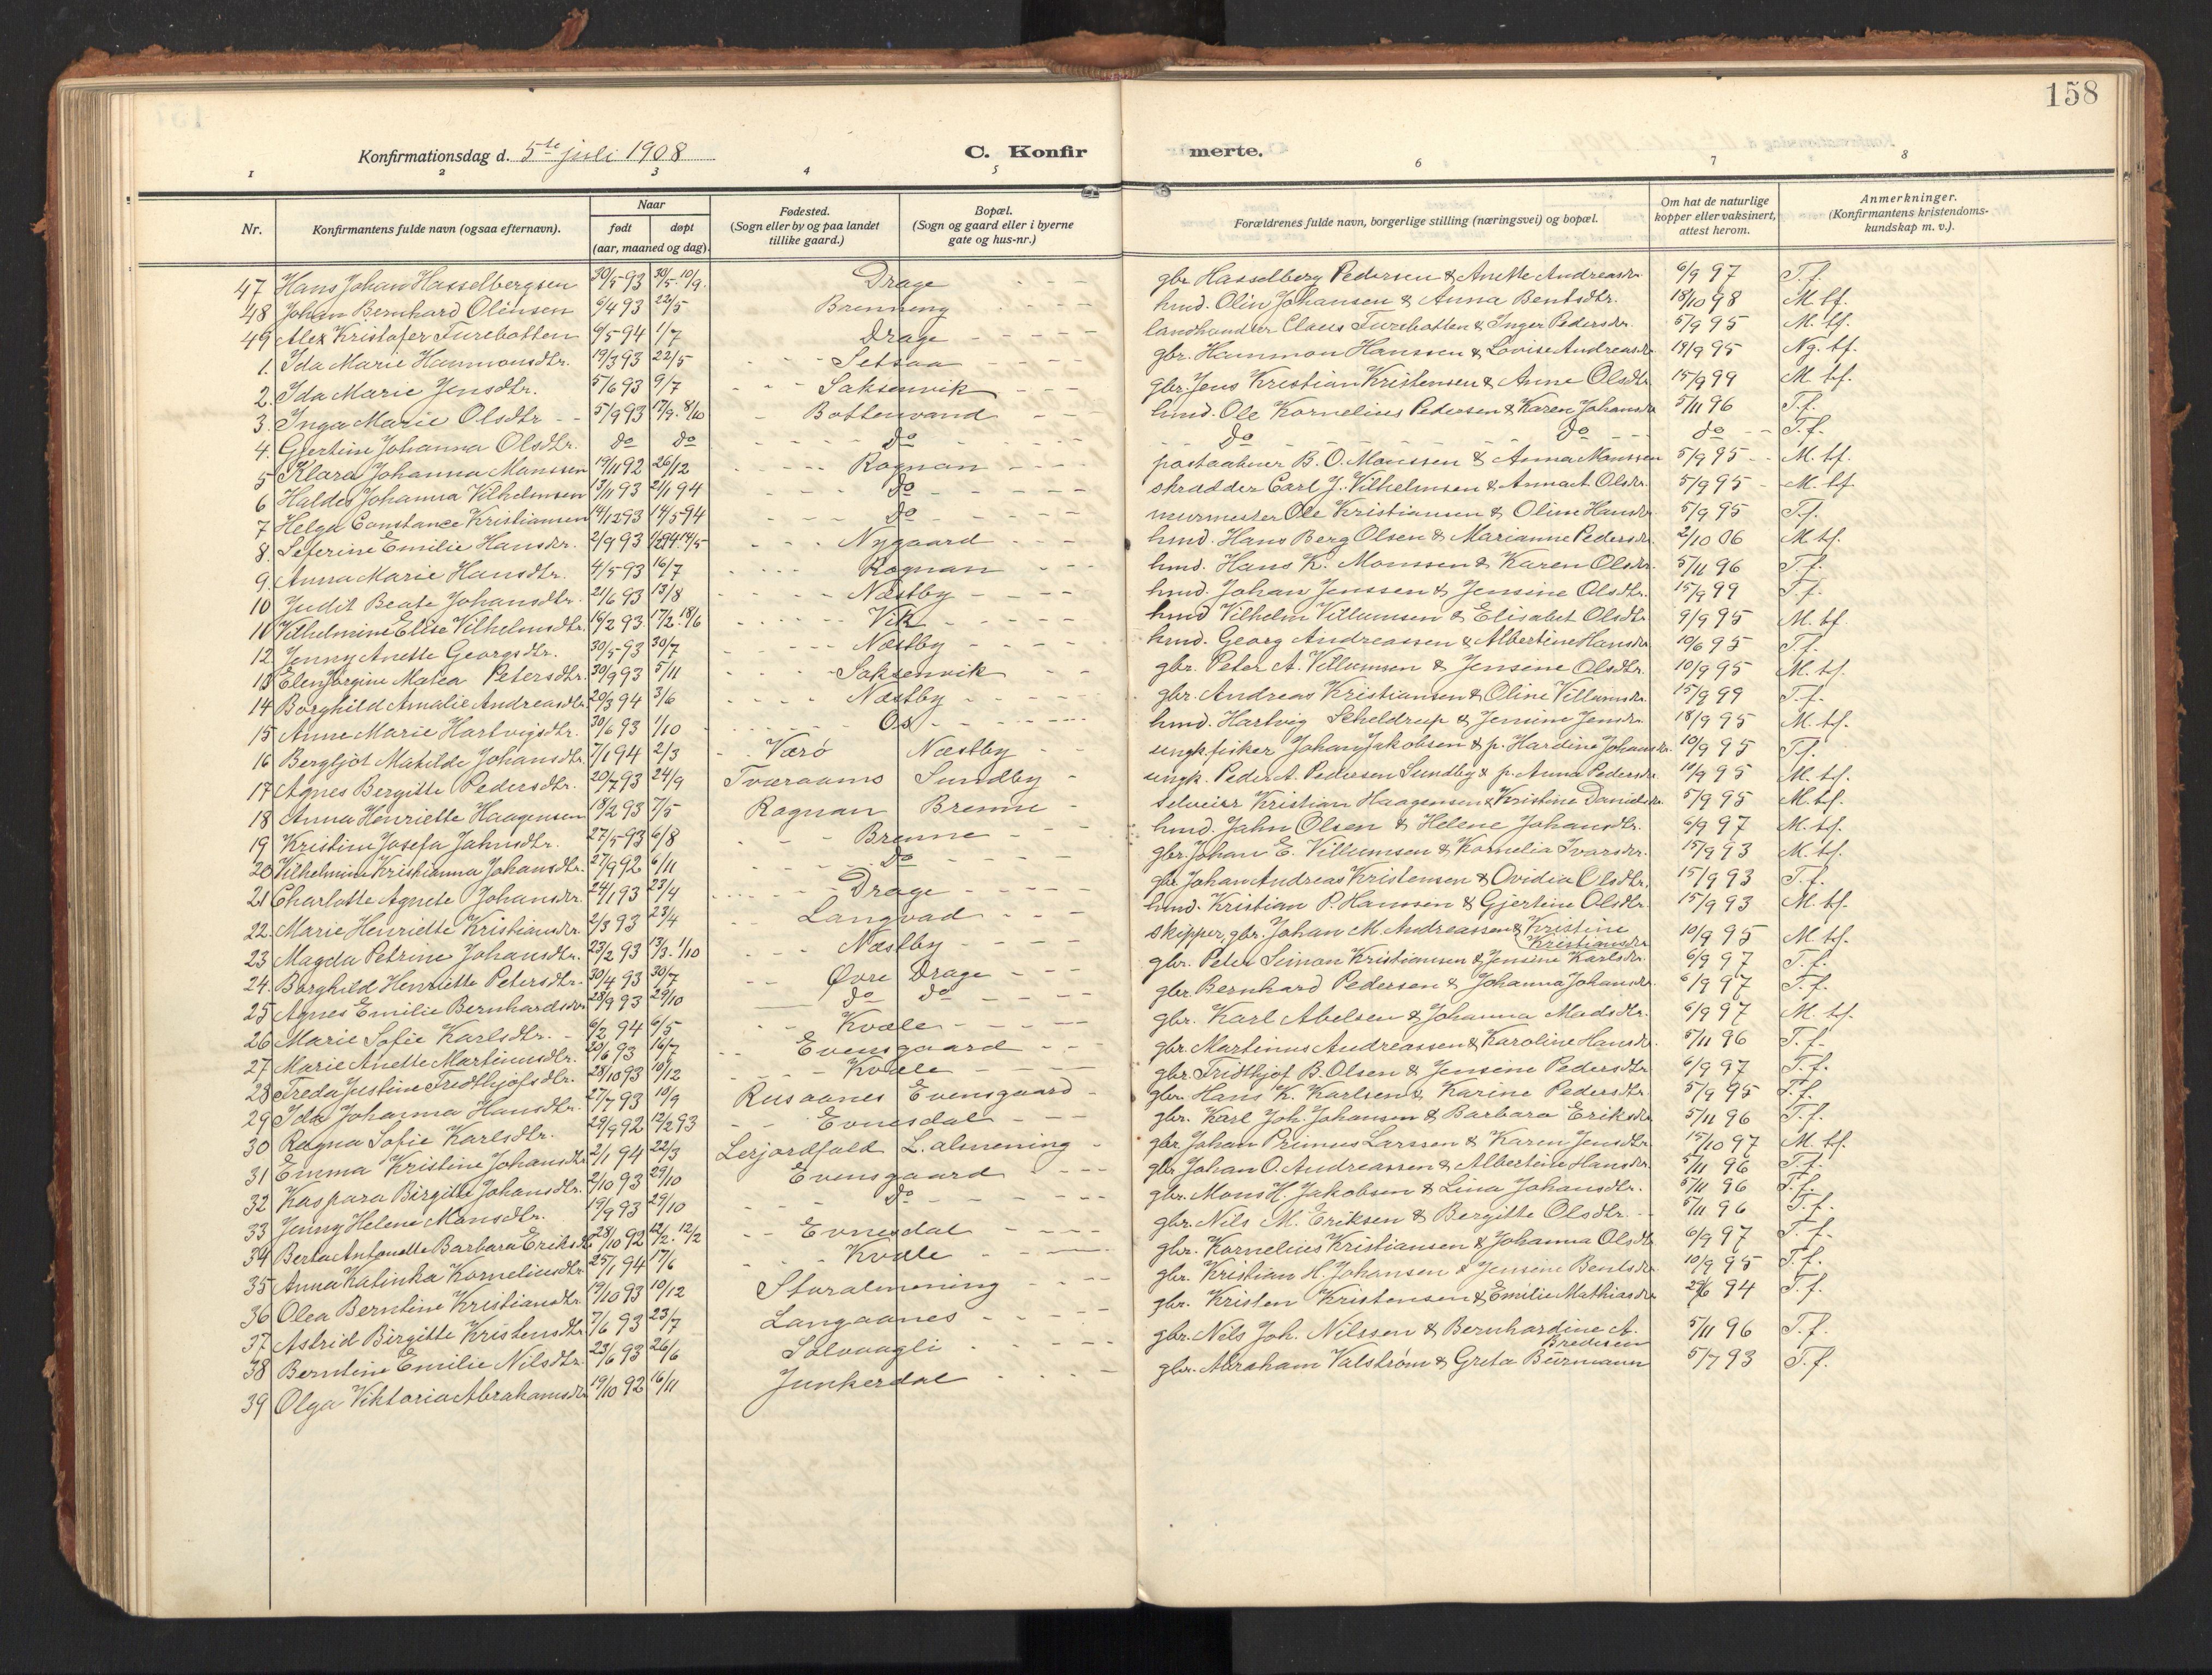 158
Konfirmationsdag d. 5te juli 1908 C. Konfir merte.
1 2 3 4 5 6 7 8
Nr. Konfirmantens fulde navn (ogsaa efternavn). Naar født døpt (aar, maaned og dag). Fødested. (Sogn eller by og paa landet tillike gaard.) Bopæl. (Sogn og gaard eller i byerne gate og hus-nr.) Forældrenes fulde navn, borgerlige stilling (næringsvei) og bopæl. Om hat de naturlige kopper eller vaksinert, attest herom. Anmerkninger. (Konfirmantens kristendoms-kundskap m. v.).
47 Hans Johan Hasselbergsen 30/5 93 30/5. 10/9. Drage gbr. Hasselberg Pedersen & Anette Andreasdr. 6/9 97 T.f.
48 Johan Bernhard Olinsen 6/4 93 22/5 Brenning hmd. Olin Johansen & Anna Bentsdtr. 18/10 98 M. tf.
49 Alex Kristofer Turebotten 6/5 94 1/7 Drage landhandler Claus Turebotten & Inger Pedersdr. 5/9 95 M. tf.
1. Ida Marie Hammonsdtr. 19/3 93 22/5 Setsaa gbr. Hammon Hanssen & Lovise Andreasdr. 18/9 95 Ng. tf.
2. Ida Marie Jensdtr. 5/6 93 9/7 Saksenvik gbr. Jens Kristian Kristensen & Anne Olsdtr 15/9 99 M. tf.
3. Inga Marie Olsdtr 5/9 93 17/9. 8/10 Bottenvand hmd. Ole Kornelius Pedersen & Karen Johansdr 5/11 96 T.f.
4. Gjertine Johanna Olsdtr. do do do do do do T.f.
5 Klara Johanna Monssen 19/11 92 26/12 Rognan postaabner B. O. Monssen & Anna Monssen 5/9 95 M. tf.
6 Haldis Johanna Vilhelmsen 13/11 93 2/1 94 do skrædder Carl J. Vilhelmsen & Anna A. Olsdr. 5/9 95 M. tf.
7 Helga Constance Kristiansen 14/12 93 14/5 94 do murmester Ole Kristiansen & Oline Hansdr 5/9 95 T.f.
8. Seferine Emilie Hansdr. 2/9 93 14/5 Nygaard hmd. Hans Berg Olsen & Marianne Pedersdr. 2/10 06 M tf.
9. Anna Marie Hansdtr. 4/5 93 16/7 Rognan hmd. Hans K. Monssen & Karen Olsdr. 5/11 96 T.f.
10 Judit Beate Johansdtr. 21/6 93 13/8 Næstby hmd. Johan Jenssen & Jensine Olsdtr. 15/9 99 T.f.
11 Vilhelmine Elise Vilhelmsdtr. 16/2 93. 17/2. 18/6 Vik hmd Vilhelm Villumsen & Elisabet Olsdtr 9/9 95 M. tf.
12 Jenny Anette Georgsdtr. 30/5 93 30/7 Næstby hmd. Georg Andreassen & Albertine Hansdr 10/6 95 T.f.
13 Elen Jørgine Matea Petersdtr. 30/9 93 5/11 Saksenvik gbr. Peter A. Villumsen & Jensine Olsdtr. 10/9 95 M. tf.
14 Borghild Amalie Andreasdtr. 20/3 94 3/6 Næstby gbr. Andreas Kristiansen & Oline Villumsdr. 15/9 99 T.f.
15 Anne Marie Hartvigsdtr. 30/6 93 1/10 Os hmd. Hartvig Scheldrup & Jensine Jensdr. 18/9 95 M. tf.
16 Bergljot Matilde Johansdtr. 7/1 94 2/3 Værø Næstby ungk. fisker Johan Jakobsen & p. Hardine Johansdr. 10/9 95 T.f.
17 Agnes Bergitte Pedersdtr. 20/7 93 24/9 Tveraamo Sundby ungk. Peder A. Pedersen Sundby & p. Anna Pedersdr. 10/9 95 M. tf.
18 Anna Henriette Haagensen 18/2 93 7/5 Rognan Brenne selveier Kristian Haagensen & Kristine Danielsdr. 5/9 95 M. tf.
19 Kristine Josefa Jahnsdtr. 27/5 93 6/8 Brenne hmd. Jahn Olsen & Helene Johansdtr. 6/9 97 M. tf.
20 Vilhelmine Kristianna Johansdtr. 27/9 92 6/11 do gbr. Johan E. Villumsen & Kornelia Ivarsdr. 15/9 93 M. tf.
21 Charlotte Agnete Johansdr. 24/1 93 23/4 Drage gbr Johan Andreas Kristensen & Ovidia Olsdtr. 15/9 93 T.f.
22. Marie Henriette Kristiansdr. 2/3 93 23/4 Langvad hmd. Kristian P. Hanssen & Gjertine Olsdtr. 15/9 93 M. tf.
23 Magda Petrine Johansdtr. 23/2 93 13/3. 1/10 Næstby skipper, gbr. Johan M. Andreassen & Kristine Kristiansdr 10/9 95 M. tf.
24. Borghild Henriette Petersdtr. 30/4 93 30/7 Øvre Drage gbr. Peter Simon Kristiansen & Jensine Karlsdr. 6/9 97 T.f.
25 Agnes Emilie Bernhardsdr. 28/9 93 29/10 do do gbr. Bernhard Pedersen & Johanna Johansdr. 6/9 97 T.f.
26 Marie Sofie Karlsdtr. 6/2 94 6/5 Kvæle gbr. Karl Abelsen & Johanna Madsdtr. 6/9 97 M. tf.
27 Marie Anette Martinusdtr. 20/6 93 16/7 Evensgaard gbr. Martinus Andreassen & Karoline Hansdr. 5/11 96 T.f.
28 Freda Justine Fridthjofsdtr. 28/10 93 10/12 Kvæle gbr. Fridthjof B. Olsen & Jensine Pedersdtr 6/9 97 T.f.
29 Ida Johanna Hansdtr. 27/7 93 10/9 Rusaanes Evensgaard gbr. Hans K. Karlsen & Karine Pedersdtr. 5/9 95 T.f.
30 Ragna Sofie Karlsdtr. 29/9 92 12/2 93 Evnesdal gbr. Karl Joh. Johansen & Barbara Eriksdr 5/11 96 T.f.
31 Emma Kristine Johansdtr 2/1 94 22/3 Lerjordfald L. almening gbr. Johan Primus Larssen & Karen Jensdtr. 15/10 97 M. tf.
32 Kaspara Birgitte Johansdtr. 2/10 93 29/10 Evensgaard gbr. Johan O. Andreassen & Albertine Hansdr. 5/11 96 T.f.
33 Jenny Helene Monsdtr. 19/9 93 29/10 do gbr. Mons H. Jakobsen & Lina Johansdtr. 5/11 96 T.f.
34 Berta Antonette Barbara Eriksdtr 28/10 92 12/2 Evnesdal gbr. Nils M. Eriksen & Bergitte Olsdtr. 5/11 96 T.f.
35 Anna Katinka Korneliusdtr 25/1 94 17/6 Kvæle gbr. Kornelius Kristiansen & Johanna Olsdtr 6/9 97 T.f.
36 Olea Berntine Kristiansdtr 19/10 93 10/12 Storalmening gbr. Kristian H. Johansen & Jensine Bentsdr 10/9 95 T.f.
37 Astrid Birgitte Kristensdtr 7/6 93 23/7 Langaanes gbr. Kristen Kristensen & Emilie Mathiasdr 94 T.f.
38 Berntine Emilie Nilsdtr. 23/6 93 26/6 Solvaagli gbr. Nils Joh. Nilssen & Bernhardine A. Bredesen 5/11 96 T.f.
39 Olga Viktoria Abrahamsdtr 19/10 92 16/11 Junkerdal gbr. Abraham Valstrøm & Greta Burmann 5/7 93 T.f.